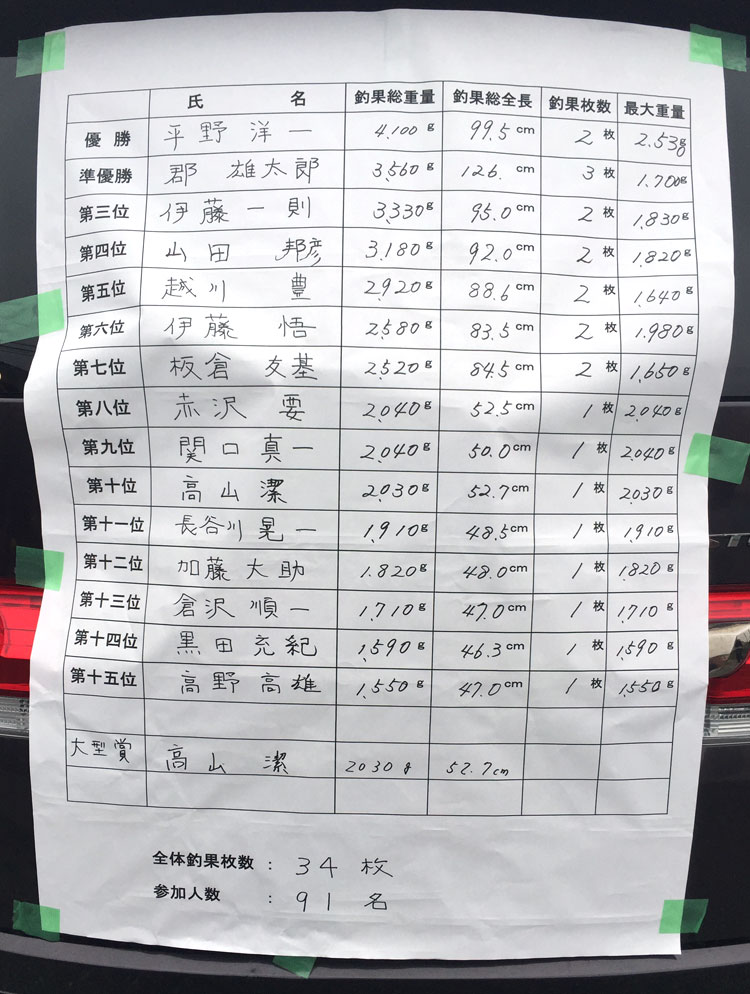 氏 名 釣果総重量 釣果総全長 釣果枚数 最大重量
優勝 平野洋一 4,100g 99.5cm 2枚 2.53g
準優勝 郡 雄太郎 3,560g 126.cm 3枚 1,700g
第三位 伊藤一則 3,330g 95.0cm 2枚 1,830g
第四位 山田 邦彦 3,180g 92.0cm 2枚 1,820g
第五位 越川 豊 2,920g 88.6cm 2枚 1,640g
第六位 伊藤 悟 2,580g 83.5cm 2枚 1,980g
第七位 板倉友基 2,520g 84.5cm 2枚 1,650g
第八位 赤沢 要 2,040g 52.5cm 1枚 2,040g
第九位 関口真一 2,040g 50.0cm 1枚 2,040g
第十位 高山潔 2,030g 52.7cm 1枚 2,030g
第十一位 長谷川晃一 1,910g 48.5cm 1枚 1,910g
第十二位 加藤大助 1,820g 48.0cm 1枚 1,820g
第十三位 倉沢順一 1,710g 47.0cm 1枚 1,710g
第十四位 黒田充紀 1,590g 46.3cm 1枚 1,590g
第十五位 高野高雄 1,550g 47.0cm 1枚 1,550g
大型賞 高山 潔 2030g 52.7cm
全体釣果枚数 : 34 枚
参加人数 : 91 名